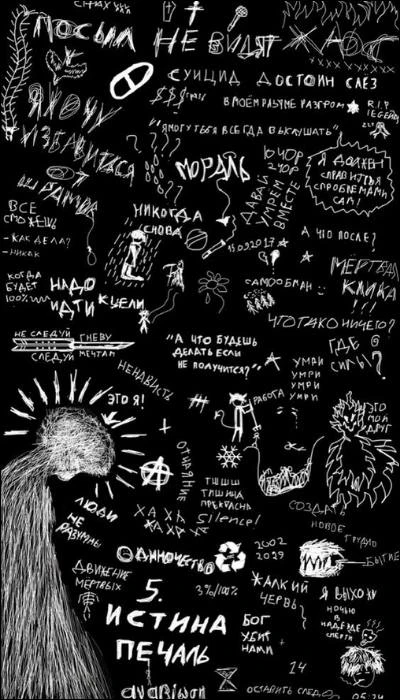 СТРАХ
ПОСЫЛ
НЕ ВИДЯТ
ХАОС
СУИЦИД ДОСТОИН СЛЕЗ
$$$
В МОЁМ РАЗУМЕ РАЗГРОМ
R.I.P
Я ХОЧУ
ИЗБАВИТЬСЯ
ОТ
ШРАМОВ
"Я МОГУ ТЕБЯ ВСЕГДА ВЫСЛУШАТЬ"
МОРАЛЬ
ДАВАЙ
УМРЁМ
ВМЕСТЕ
Я ДОЛЖЕН
СПРАВИТЬСЯ
С ПРОБЛЕМАМИ
САМ!
ВСЕ
СМОЖЕШЬ
- КАК ДЕЛА?
- НИКАК
НИКОГДА
СНОВА
15.09.2017
А ЧТО ПОСЛЕ?
МЁРТВАЯ
КЛИКА
!!!
КОГДА
БУДЕТ
100%
НАДО
ИДТИ
К ЦЕЛИ
САМООБМАН
ЧТО ТАКО НИЧЕГО?
НЕ СЛЕДУЙ ГНЕВУ
СЛЕДУЙ МЕЧТАМ
"А ЧТО БУДЕШЬ
ДЕЛАТЬ ЕСЛИ
НЕ ПОЛУЧИТСЯ?"
ГДЕ
СИЛЫ?
УМРИ
УМРИ
УМРИ
УМРИ
НЕНАВИСТЬ
ЭТО Я!
РАБОТА
ЭТО
МОЙ
ДРУГ
ОТЧАЯНИЕ
ТШШШ
ТИШИНА
ПРЕКРАСНА
Silence!
ЛЮДИ
НЕ
РАЗУМНЫ
ХА ХА
ХА ХА
СОЗДАТЬ
НОВОЕ
ТРУДНО
БЫТИЕ
ОДИНОЧЕСТВО
2002
2029
ДВИЖЕНИЕ
МЕРТВЫХ
5.
3%/100%
ЖАЛКИЙ
ЧЕРВЬ
Я ВЫХОЖУ
НОЧЬЮ
В
НАДЕЖДЕ
СМЕРТИ
ИСТИНА
ПЕЧАЛЬ
БОГ
УБИТ
НАМИ
14
ОСТАВИТЬ СЛЕД